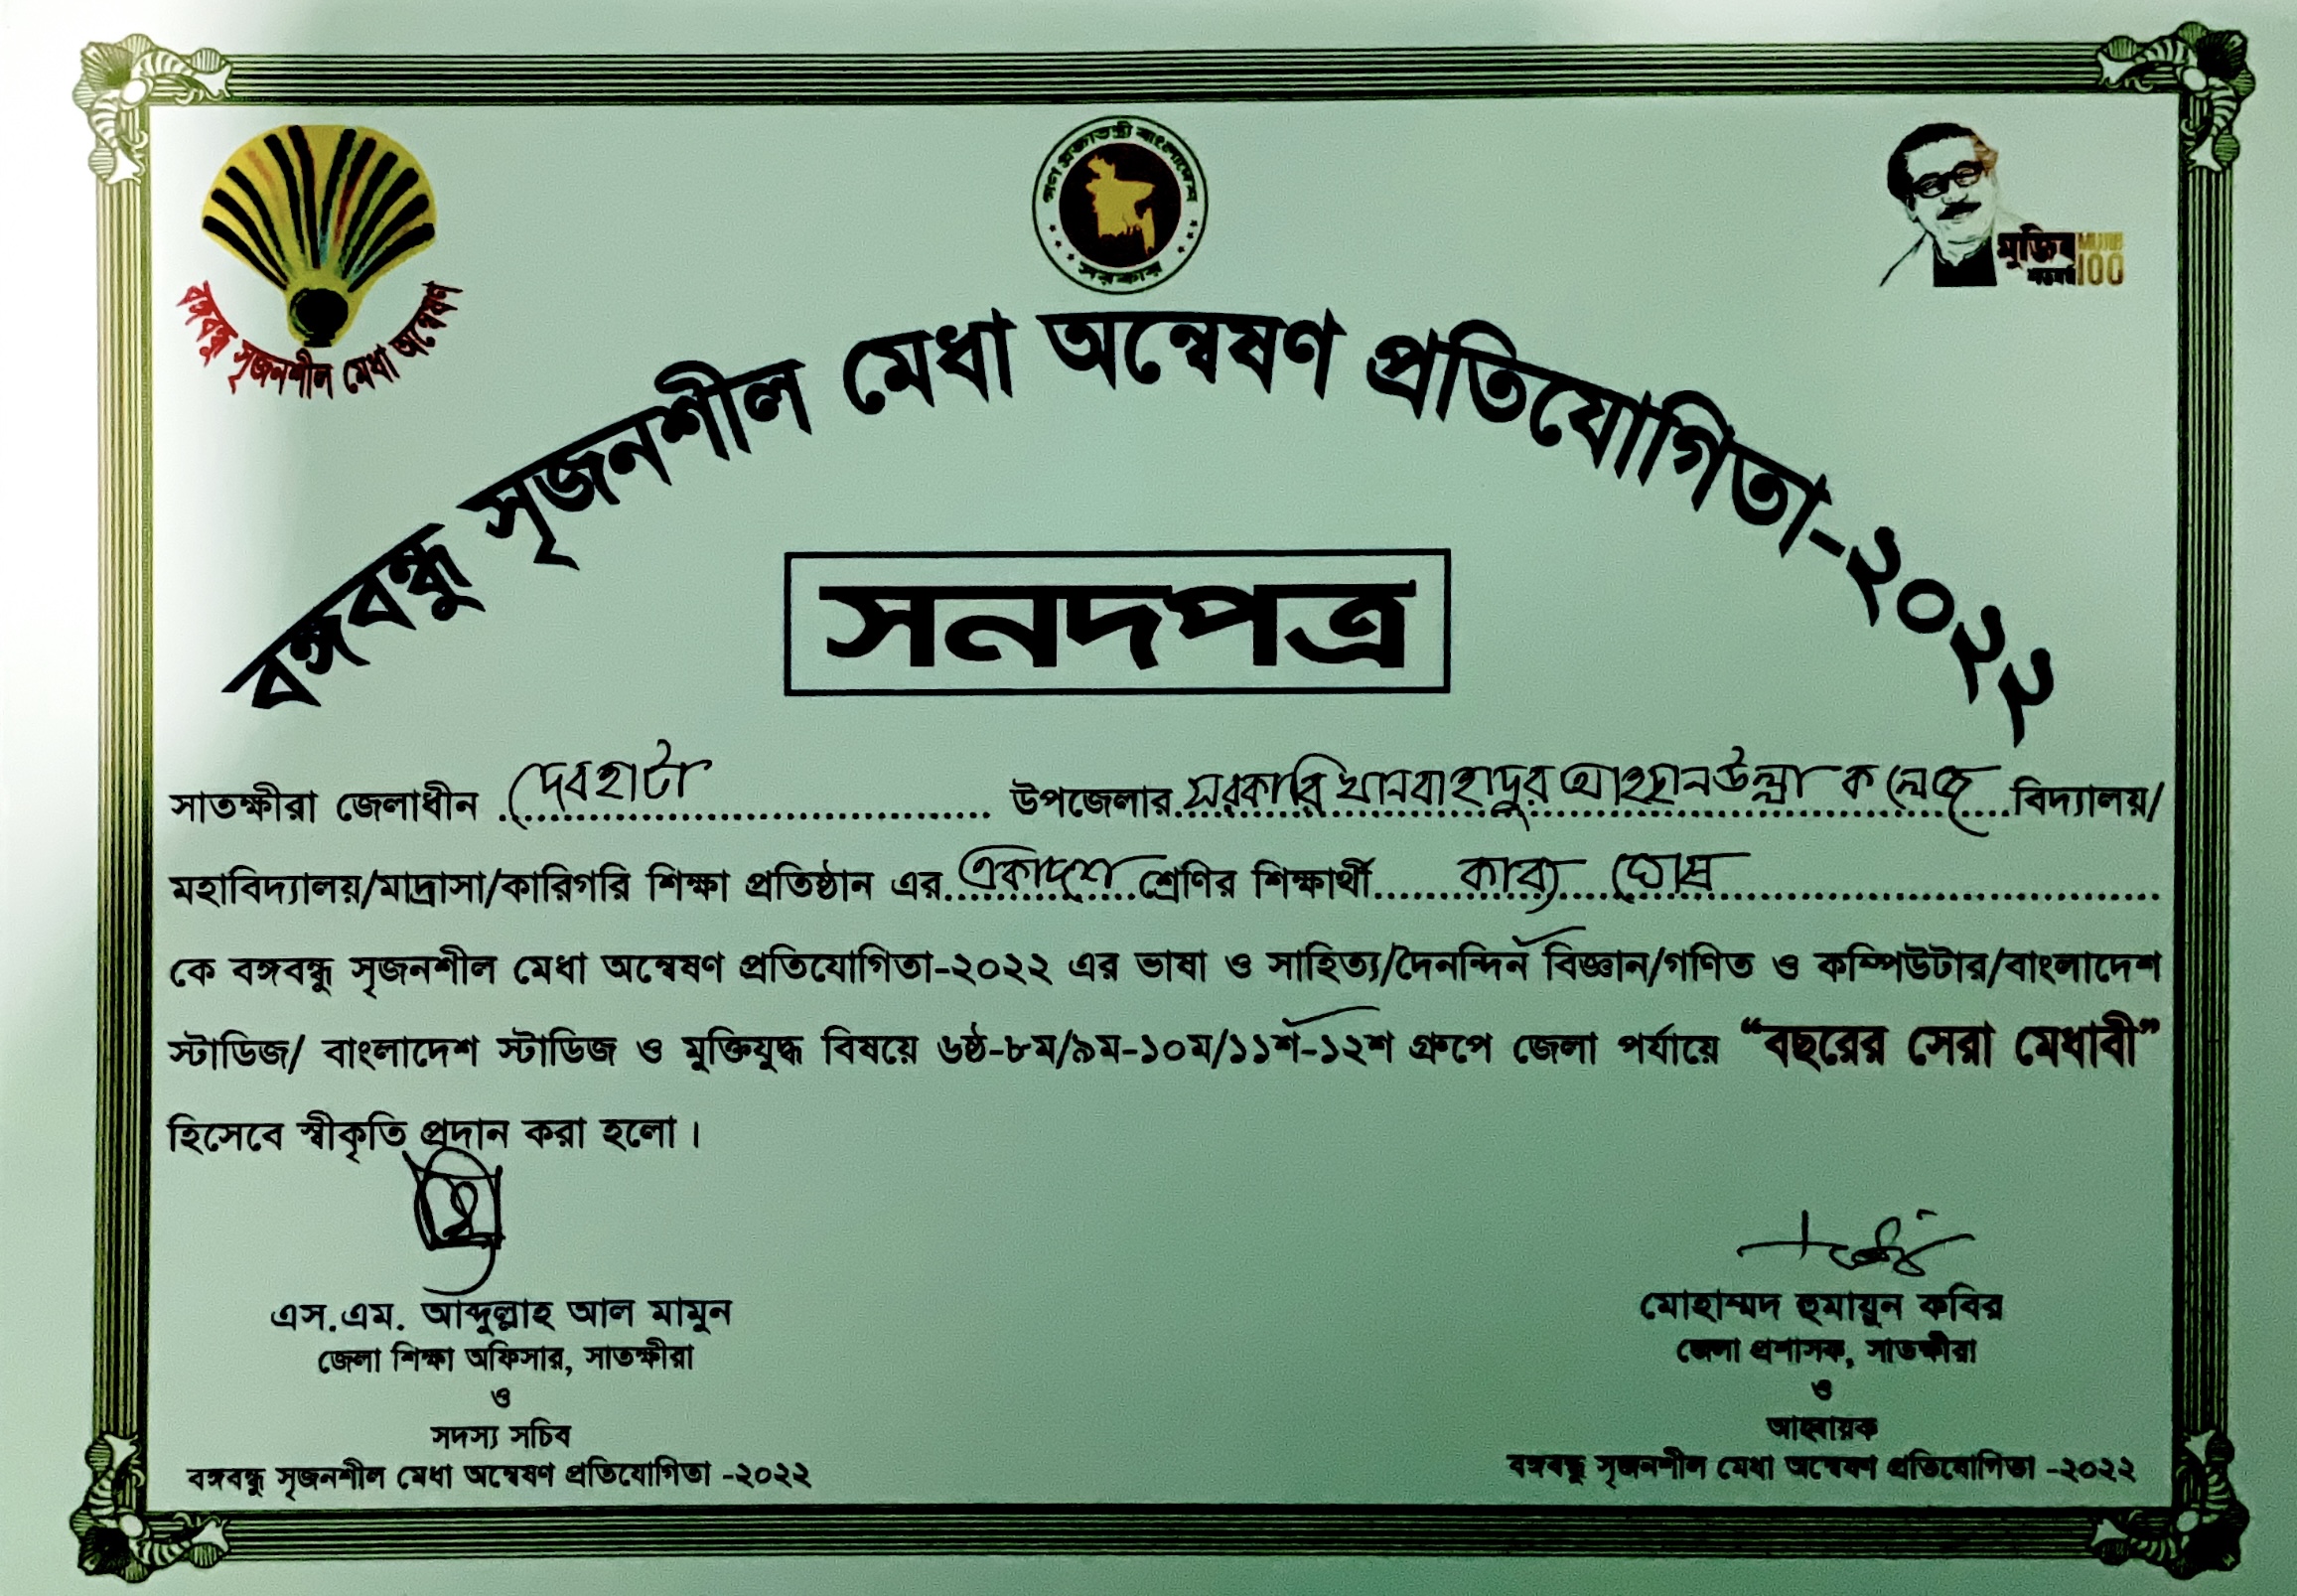 গণ প্রজাতন্ত্রী বাংলাদেশ
সরকার
বঙ্গবন্ধু সৃজনশীল মেধা অন্বেষণ
মুজিব MUJIB
শতবর্ষ 100
বঙ্গবন্ধু সৃজনশীল মেধা অন্বেষণ প্রতিযোগিতা-২০২২
সনদপত্র
সাতক্ষীরা জেলাধীন দেবহাটা উপজেলার সরকারি খানবাহাদুর আহছানউল্লা কলেজ বিদ্যালয়/
মহাবিদ্যালয়/মাদ্রাসা/কারিগরি শিক্ষা প্রতিষ্ঠান এর একাদশ শ্রেণির শিক্ষার্থী কাব্য ঘোষ
কে বঙ্গবন্ধু সৃজনশীল মেধা অন্বেষণ প্রতিযোগিতা-২০২২ এর ভাষা ও সাহিত্য/দৈনন্দিন বিজ্ঞান/গণিত ও কম্পিউটার/বাংলাদেশ
স্টাডিজ/ বাংলাদেশ স্টাডিজ ও মুক্তিযুদ্ধ বিষয়ে ৬ষ্ঠ-৮ম/৯ম-১০ম/১১শ-১২শ গ্রুপে জেলা পর্যায়ে “বছরের সেরা মেধাবী”
হিসেবে স্বীকৃতি প্রদান করা হলো।
এস.এম. আব্দুল্লাহ আল মামুন
জেলা শিক্ষা অফিসার, সাতক্ষীরা
ও
সদস্য সচিব
বঙ্গবন্ধু সৃজনশীল মেধা অন্বেষণ প্রতিযোগিতা -২০২২
মোহাম্মদ হুমায়ুন কবির
জেলা প্রশাসক, সাতক্ষীরা
ও
আহ্বায়ক
বঙ্গবন্ধু সৃজনশীল মেধা অন্বেষণ প্রতিযোগিতা -২০২২